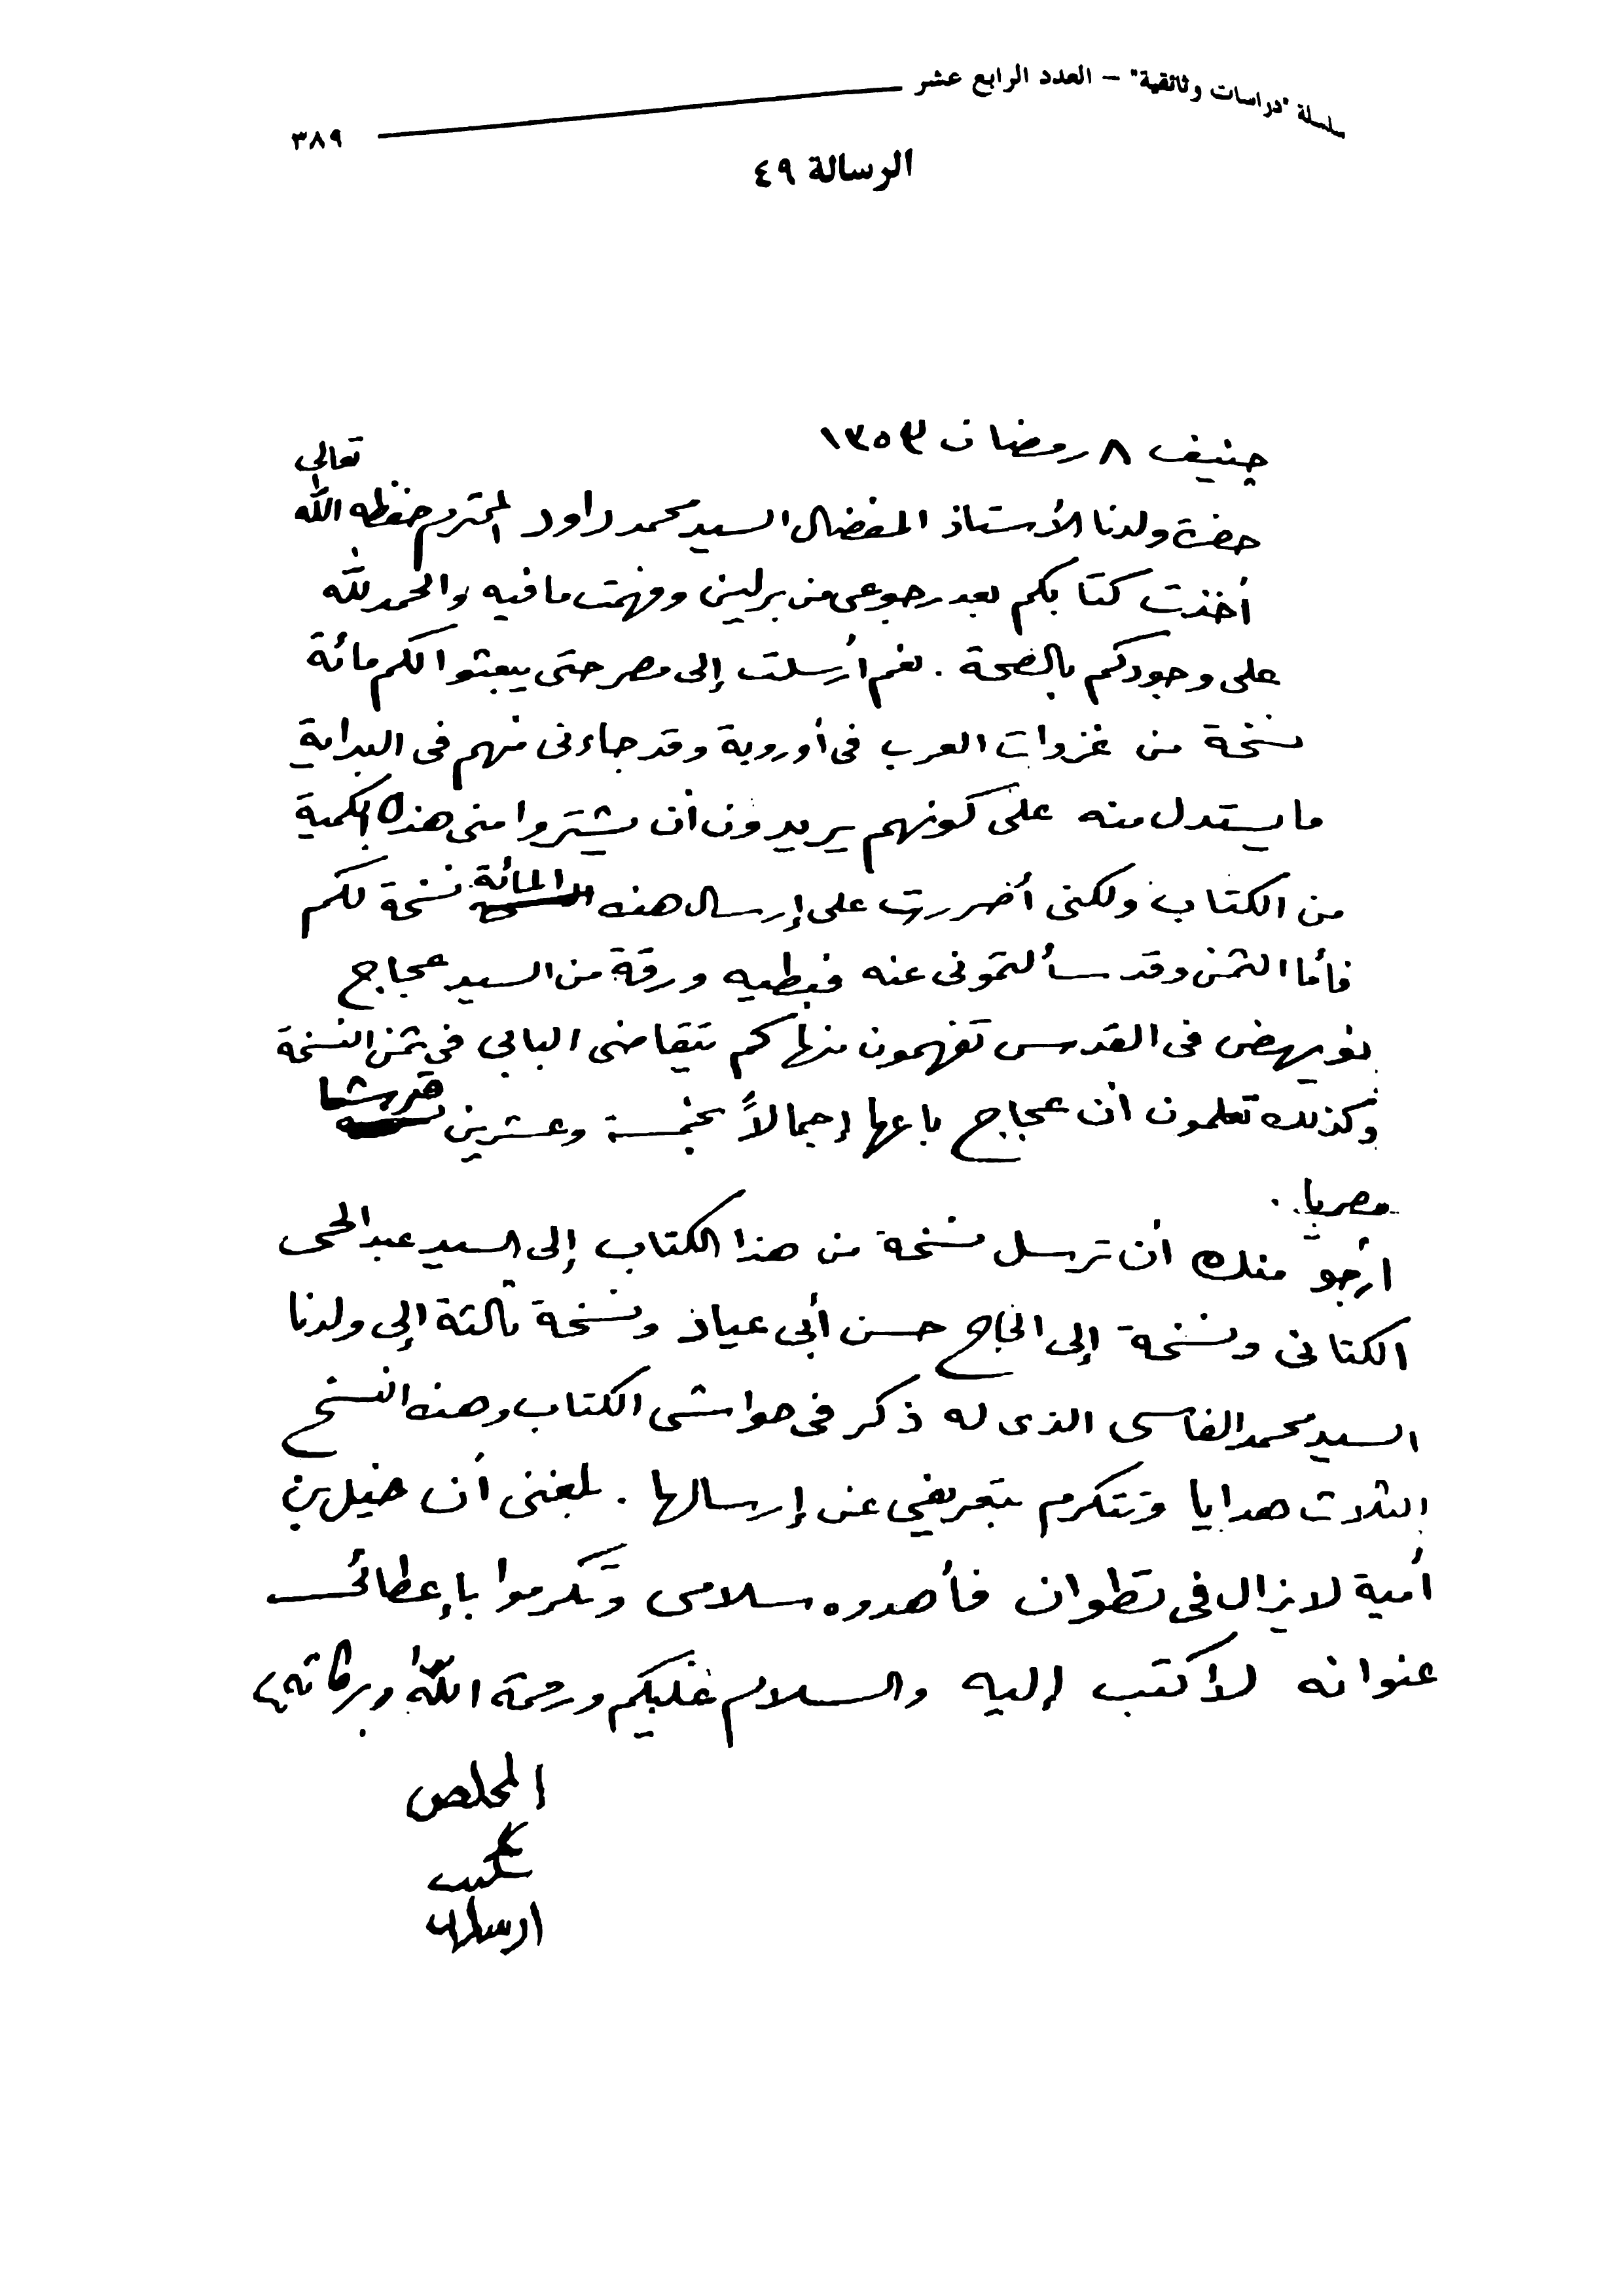 سلسلة "دراسات وثائقية" – العدد الرابع عشر
٣٨٩
الرسالة ٤٩
جنيف ٨ رمضان ١٣٥٣
حضرة ولدنا الأستاذ المفضال السيد محمد داود المحترم حفظه الله تعالى
أخذت كتابكم بعد رجوعى من برلين وفهمت ما فيه والحمد لله
على وجودكم بالصحة . نعم أرسلت إلى مصر حتى يبعثوا لكم مائة
نسخة من غزوات العرب فى أوروبة وقد جاءنى منهم فى البداية
ما يستدل منه على كونهم يريدون أن يشتروا منى هذه الكمية
من الكتاب ولكنى أصررت على إرسال هذه المائة نسخة لكم
فأما الثمن وقد سألتمونى عنه فبطيه ورقة من السيد عجاج
نويهض فى القدس تفهمون منها كم يتقاضى البابى فى ثمن النسخة
وكذلك تعلمون أن عجاج باعها إجمالاً بخمسة وعشرين قرشا
مصريا .
أرجو منك أن ترسل نسخة من هذا الكتاب إلى السيد عبد الحى
الكتانى ونسخة إلى الحاج حسن أبى عياد ونسخة ثالثة إلى ولدنا
السيد محمد الفاسى الذى له ذكر فى حواشى الكتاب وهذه النسخ
الثلاث هدايا وتتكرم بتعريفي عن إرسالها . بلغنى أن خيل بن
أمية لا يزال فى تطوان فأهدوه سلامى وتكرموا بإعطائى
عنوانه لأكتب إليه والسلام عليكم ورحمة الله وبركاته
المخلص
شكيب
ارسلان